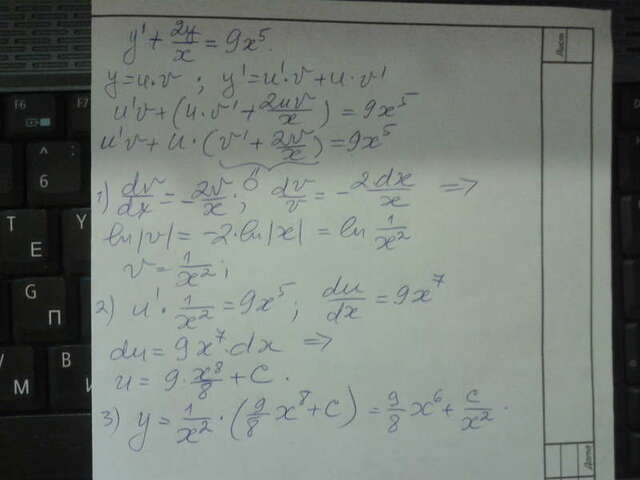 y' + 2y/x = 9x⁵.
y = u·v ; y' = u'·v + u·v'
u'v + (u·v' + 2uv/x) = 9x⁵
u'v + u·(v' + 2v/x) = 9x⁵
0
1) dv/dx = -2v/x ; dv/v = -2dx/x =>
ln|v| = -2·ln|x| = ln 1/x²
v = 1/x² ;
2) u'·1/x² = 9x⁵ ; du/dx = 9x⁷
du = 9x⁷·dx =>
u = 9·x⁸/8 + C.
3) y = 1/x²·(9/8 x⁸ + C) = 9/8 x⁶ + C/x².
Лист
Дата
F6
F7
^ :
6
T
Е
Y
G
П
M